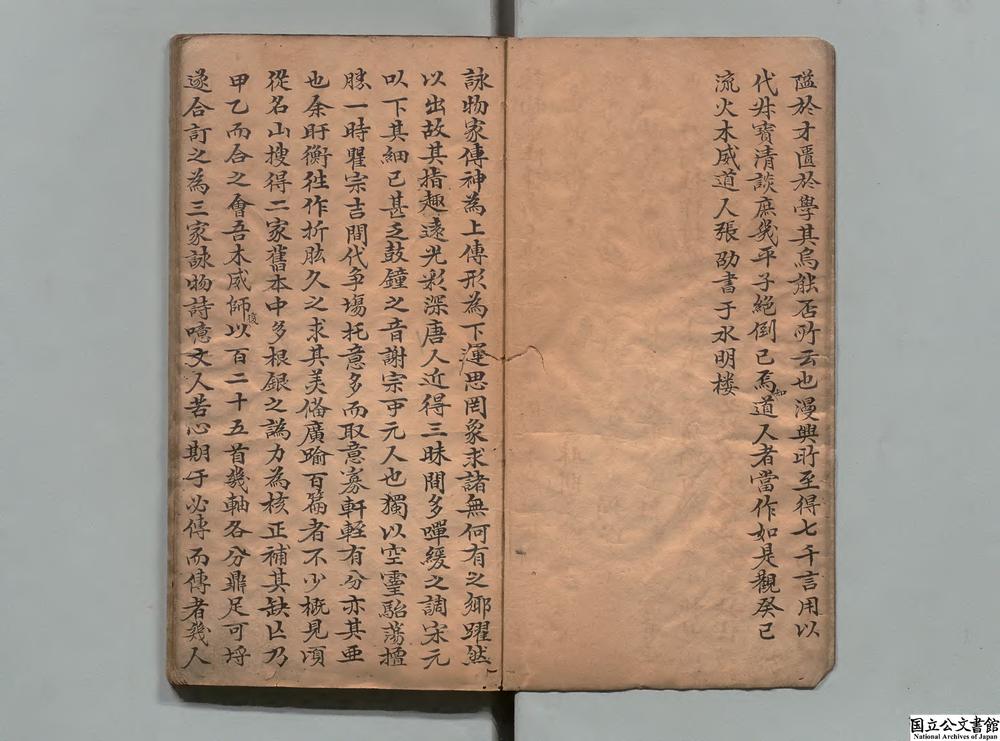 隘於才匱於學其烏能否所云也漫興所至得七千言用以
代舛寶清談庶幾平子絕倒已焉知道人者當作如是觀癸已
流火木威道人張劭書于水明楼
詠物家傳神為上傳形為下運思罔象求諸無何有之鄉躍然
以出故其指趣遠光彩深唐人近得三昧間多嘽緩之調宋元
以下其細已甚乏鼓鐘之音謝宗可元人也獨以空靈駘蕩擅
勝一時瞿宗吉間代争塲托意多而取意寡軒輊有分亦其亜
也余盱衡徃作折肱久之求其美俻廣踰百篇者不少概見頃
從名山搜得二家舊本中多根銀之譌力為核正補其缺亾乃
甲乙而合之會吾木威師復以百二十五首幾軸各分鼎足可埒
遂合訂之為三家詠物詩噫文人苦心期于必傳而傳者幾人
国立公文書館
National Archives of Japan